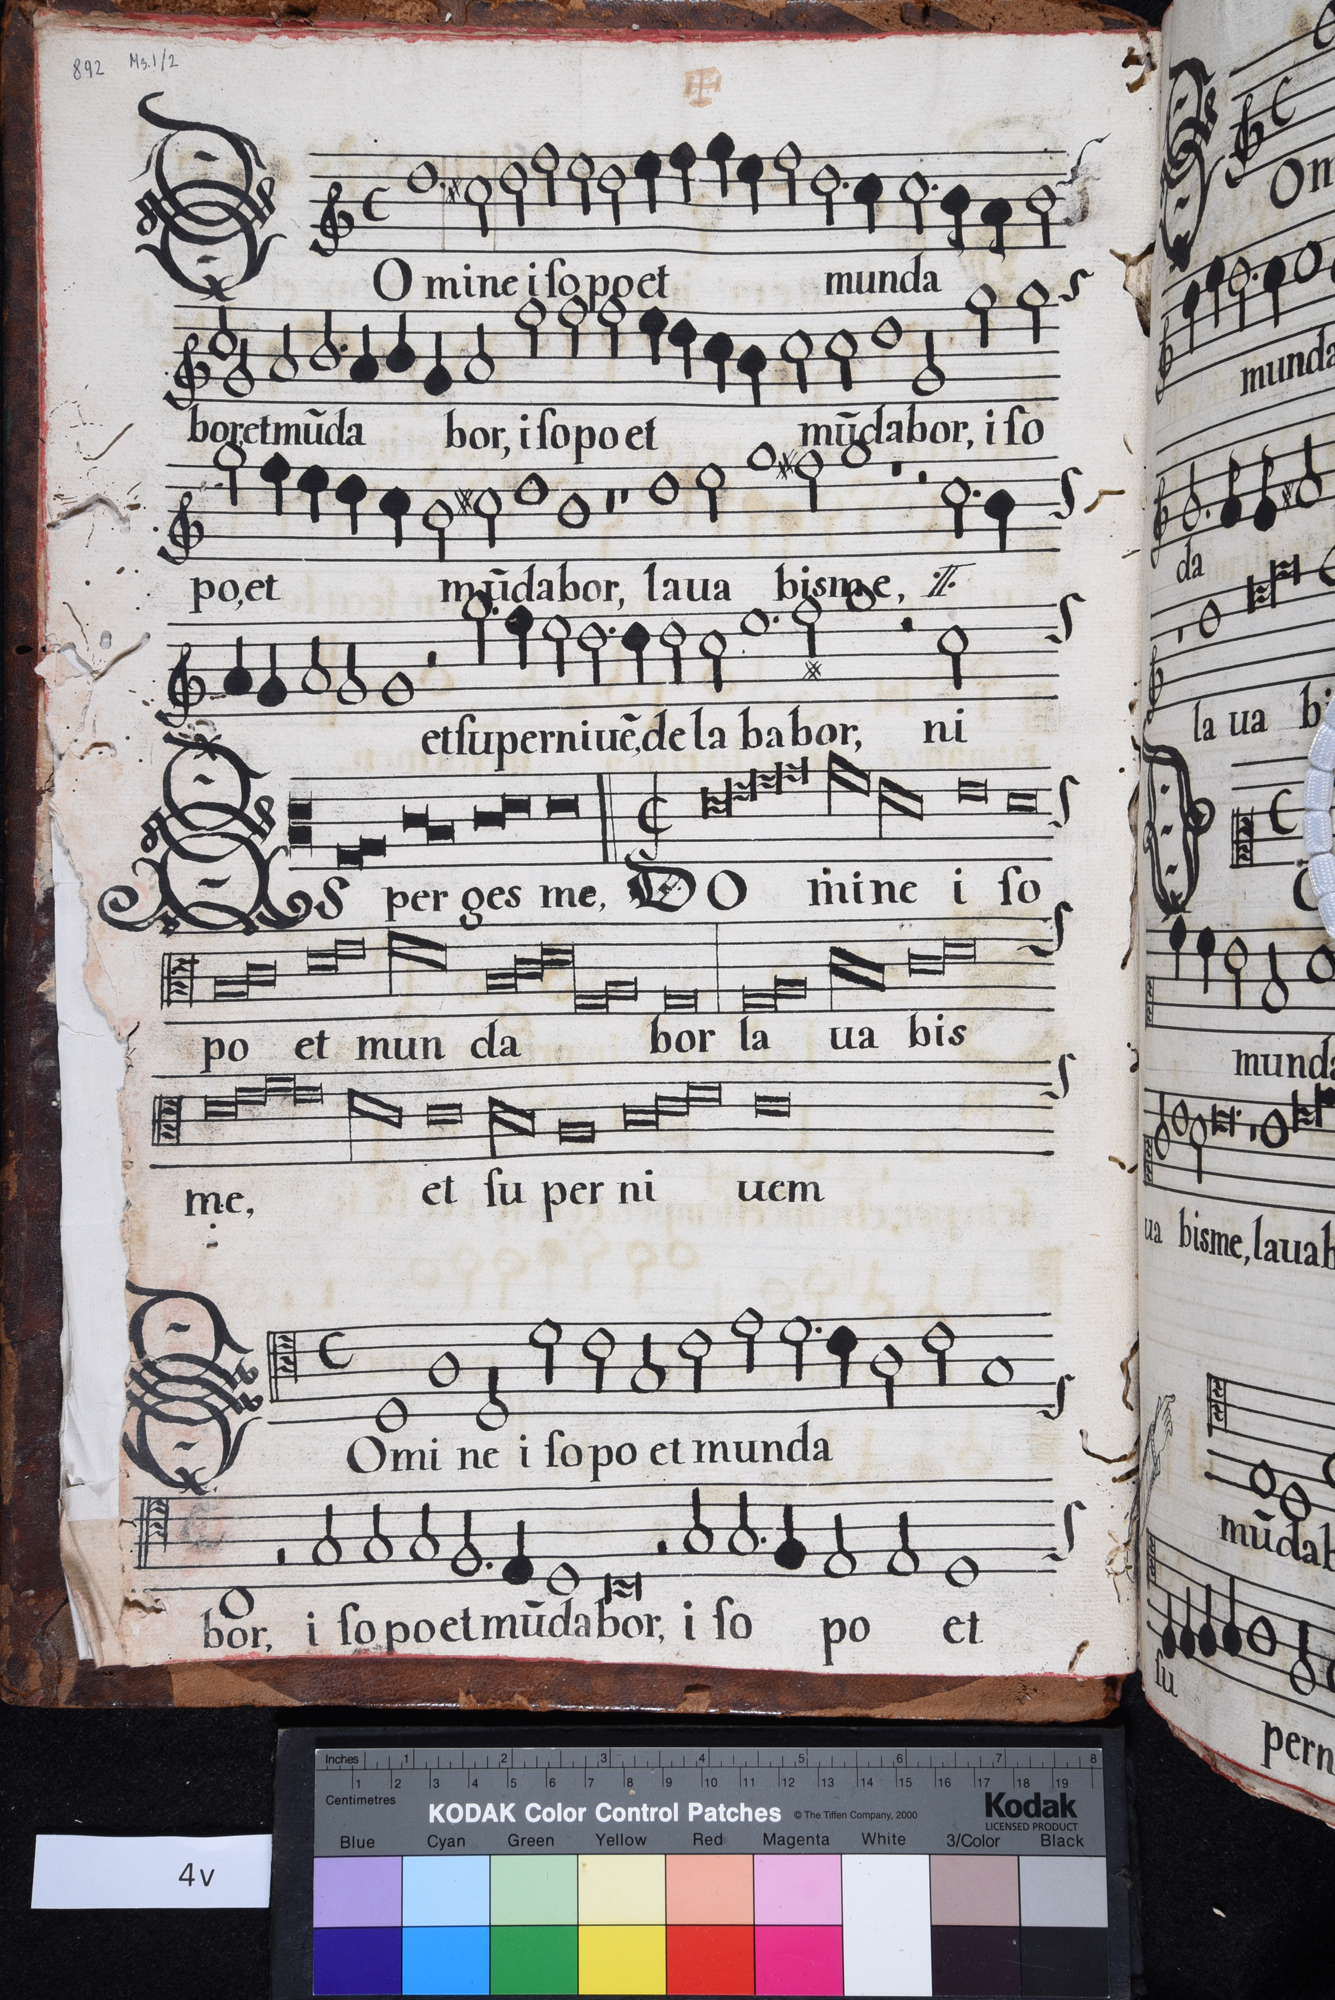 892 Ms.1/2
DOmine iſopo et munda
bor, et mũda bor, iſopo et mũdabor, iſo
po, et mũdabor, laua bisme,
et ſuperniuẽ, de la babor, ni
AS per ges me, DO mine i ſo
po et mun da bor la ua bis
me, et ſu per ni uem
DOmi ne i ſo po et munda
bor, i ſo po et mũda bor, i ſo po et
Om
munda
da
la ua bi
munda
ua bisme, laua b
mũdab
ſu
pern
Inches 1 2 3 4 5 6 7 8
1 2 3 4 5 6 7 8 9 10 11 12 13 14 15 16 17 18 19
Centimetres
KODAK Color Control Patches © The Tiffen Company, 2000 Kodak
LICENSED PRODUCT
Blue Cyan Green Yellow Red Magenta White 3/Color Black
4v